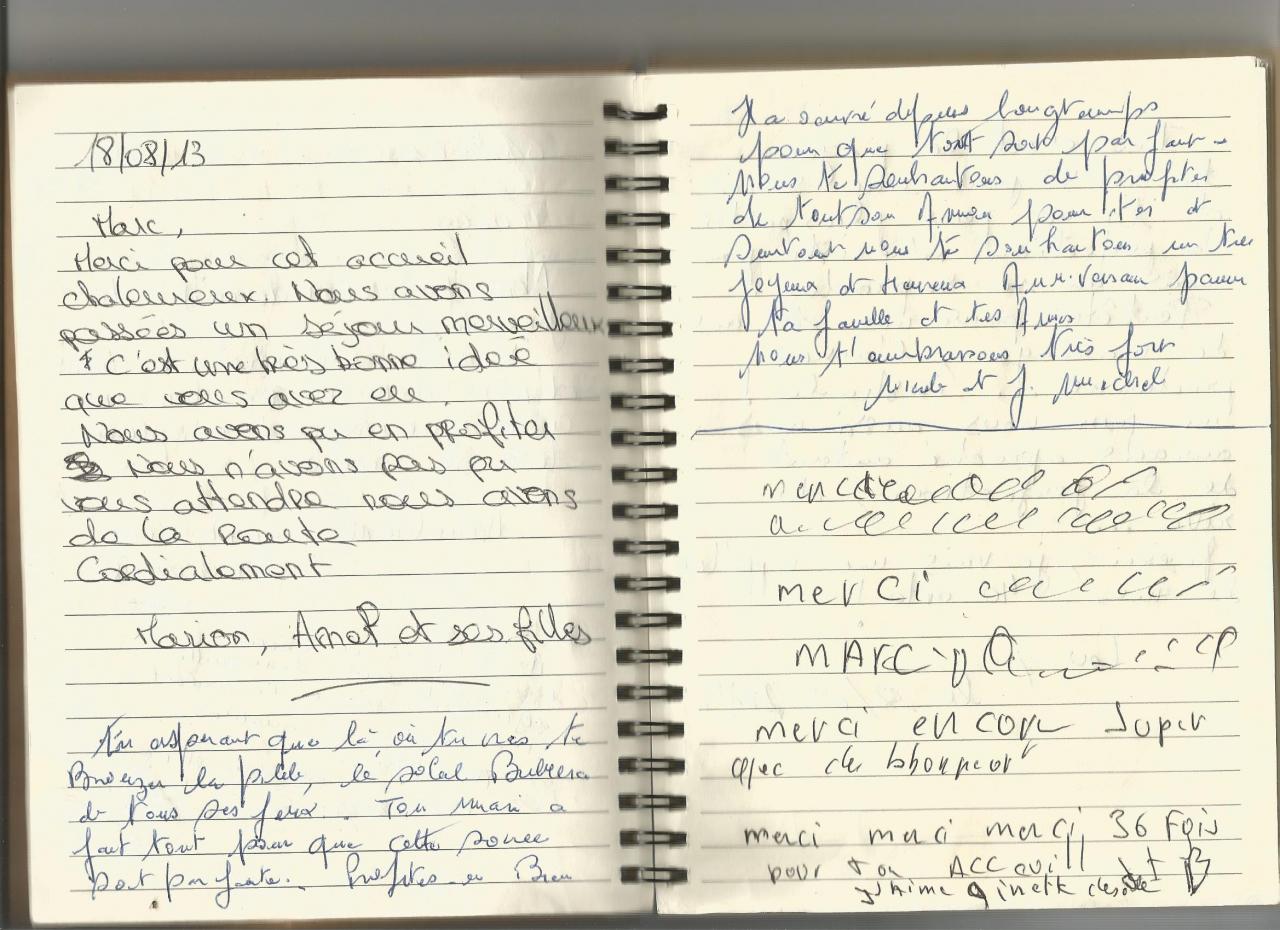 18/08/13
Marc,
Merci pour cet accueil
chaleureux. Nous avons
passées un séjour merveilleux
c'est une très bonne ideé
que vous avez eu.
Nous avons pu en profiter
Nous n'avons pas pu
vous attendre nous avons
de la route
Cordialement
Marion, et ses filles
En esperant que là, où tu vas te
la , le soleil Brillera
de tous ses feux. Ton mari a
fait tout pour que cette soiree
soit parfaite. Profites-en Bien
Il a depuis longtemps
pour que tout soit parfait.
Nous te souhaitons de profiter
de tout son Amour pour toi et
surtout nous te souhaitons un tres
joyeux et Heureux Anniversaire parmi
ta famille et tes Amis
Nous t'embrassons très fort
et J. Michel
merci
MARC
merci encore super
avec du bhonneur
merci merci merci 36 Fois
pour ton ACCeuill